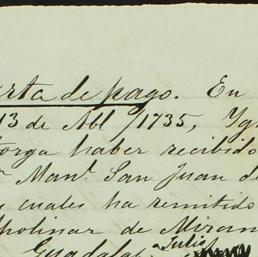 arta de pago. En
13 de Abl /1735, Yg
torga haber recibido
Man.l San Juan de
y cuales ha remitido
holinar de Miran
Guadal Julio